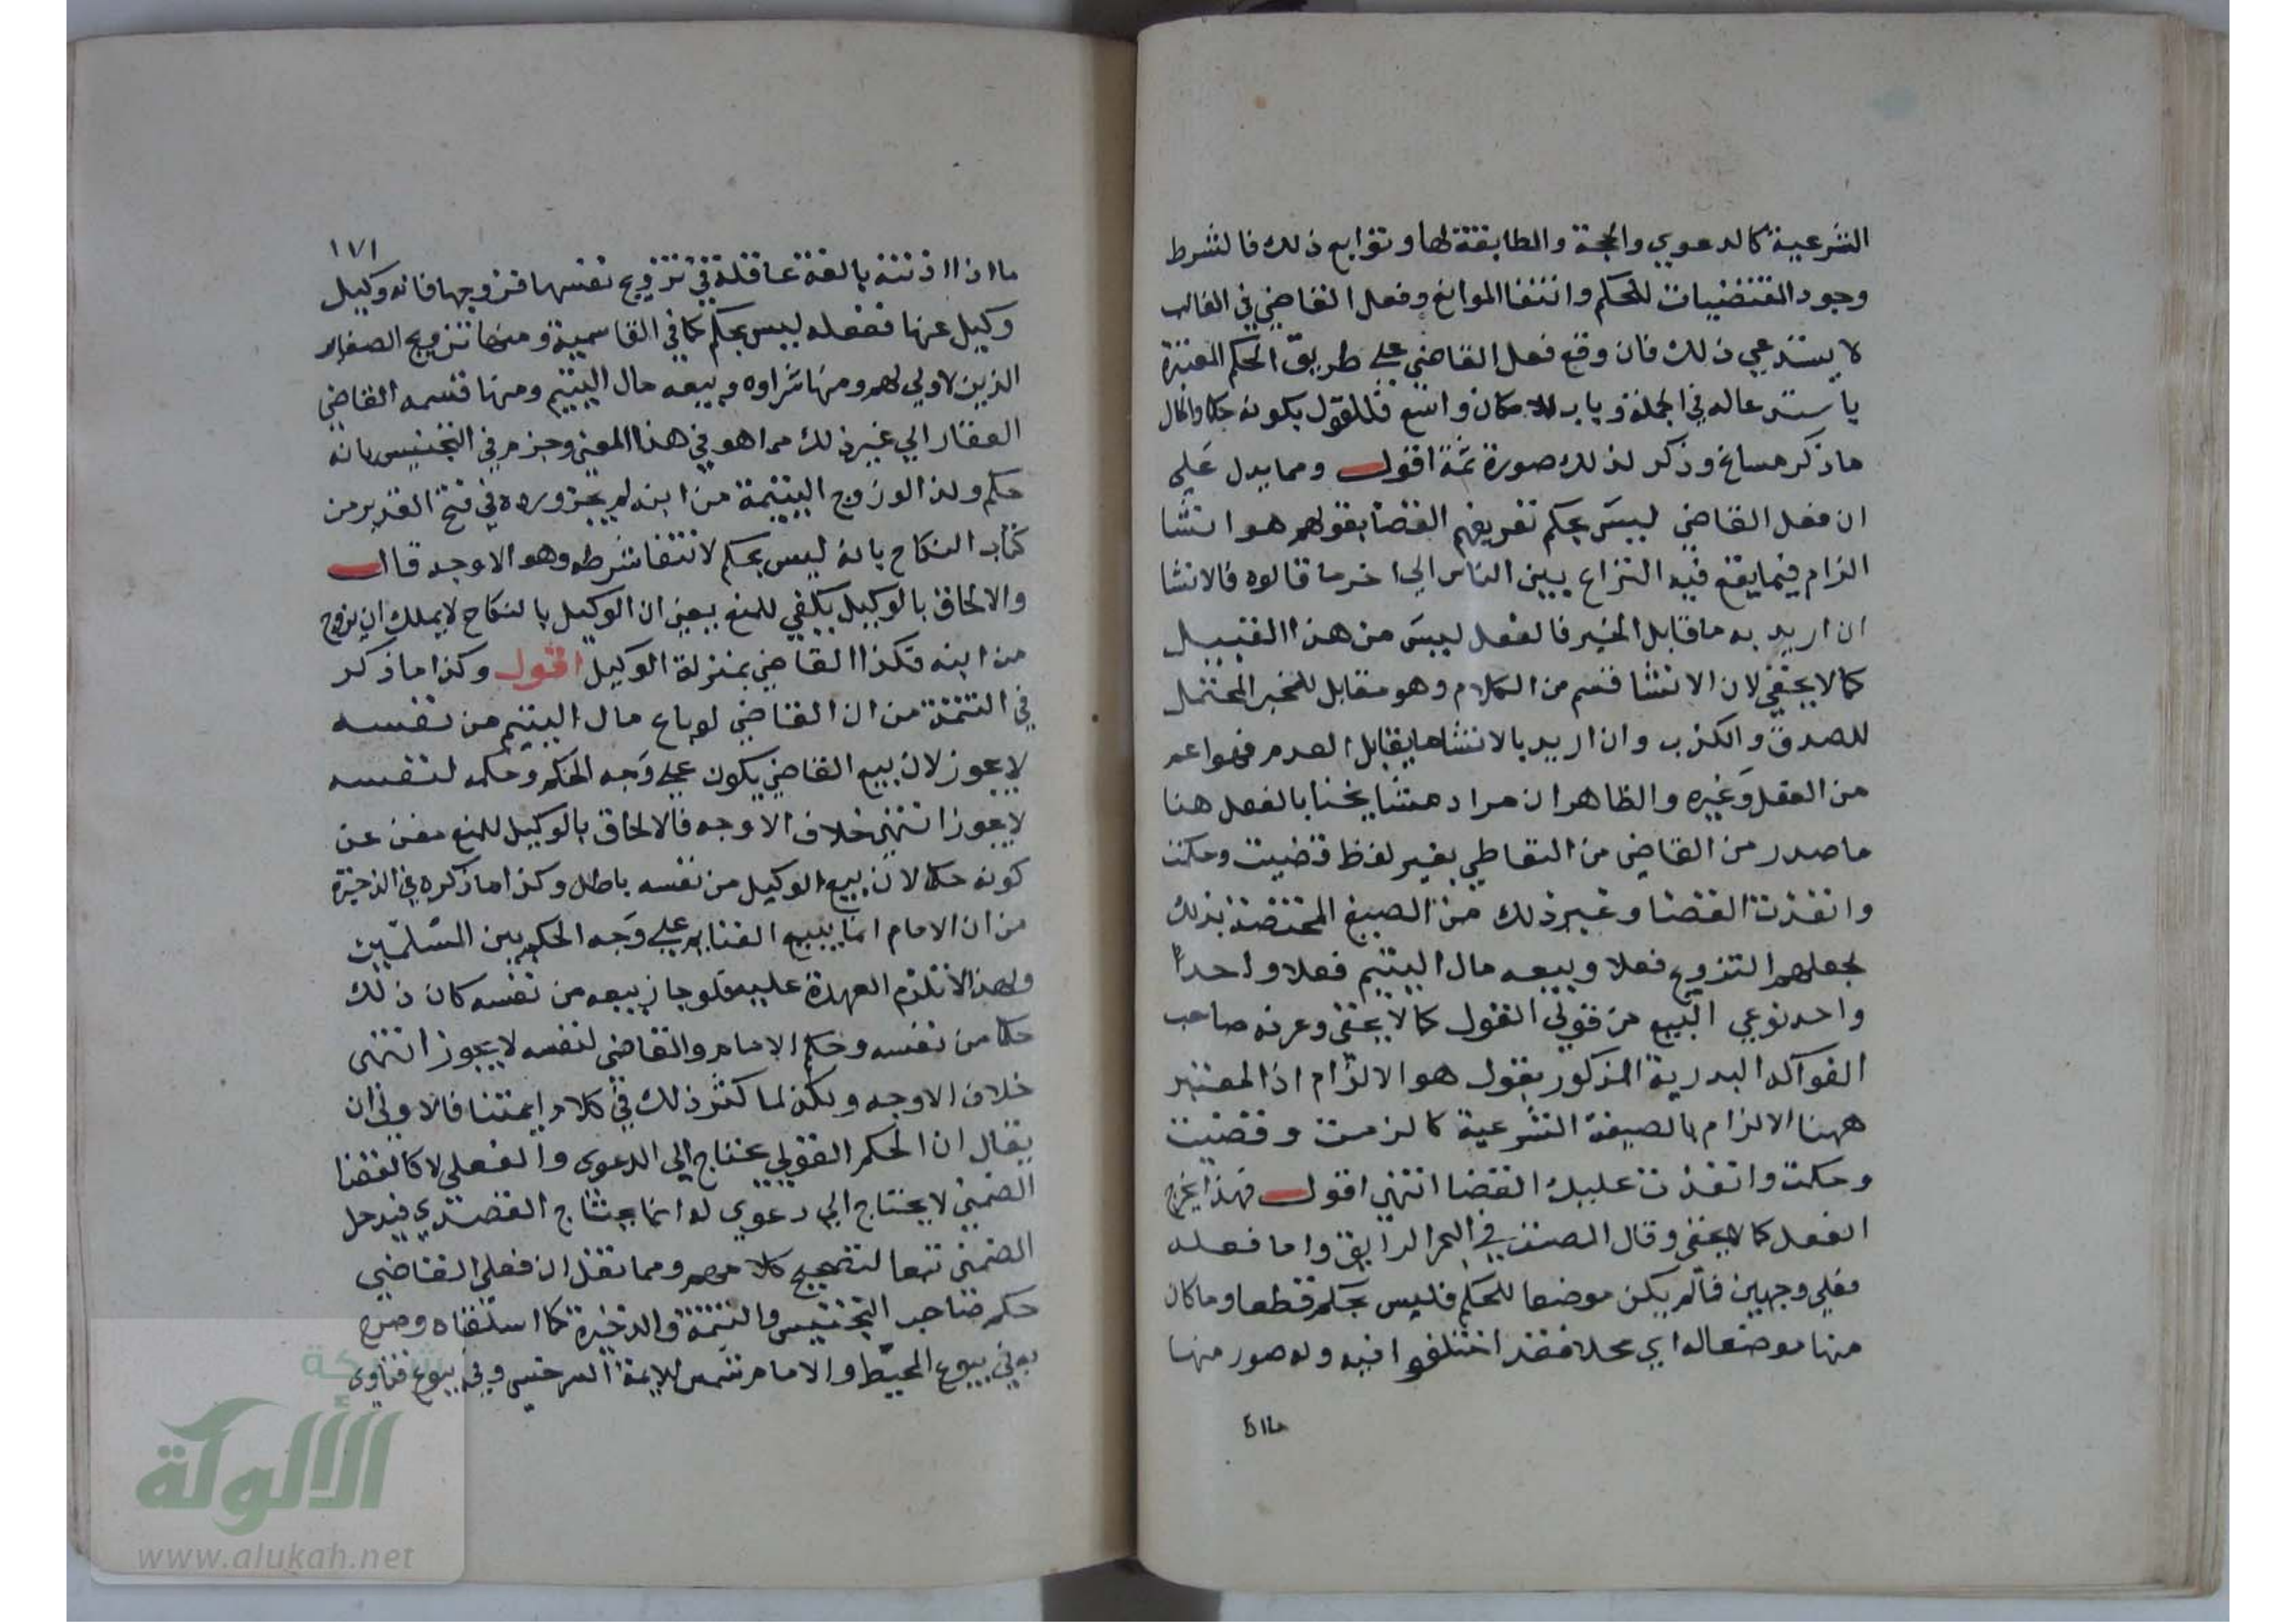 الشرعية كالدعوي والحجة والمطابقة لها وتوابع ذلك فالشرط
وجود المقتضيات للحكم وانتفا الموانع وفعل القاضي في الغالب
لا يستدعي ذلك فان وقع فعل القاضي علي طريق الحكم المعتبرة
باستدعاله في الجملة وباب الامكان واسع فللقول بكونه حكما والحال
ما ذكر مساغ وذكر لذلك صورة ثمة اقول ومما يدل علي
ان فعل القاضي ليس بحكم تعريفهم القضا بقولهم هو انشا
الزام فيما يقع فيه النزاع بين الناس الي اخر ما قالوه فالانشا
ان اريد به ما قابل الخبر فالفعل ليس من هذا القبيل
كما لا يخفي لان الانشا قسم من الكلام وهو مقابل للخبر المحتمل
للصدق والكذب وان اريد بالانشا ما يقابل العدم فهو اعم
من الفعل وغيره والظاهر ان مراد مشايخنا بالفعل هنا
ما صدر من القاضي من التعاطي بغير لفظ قضيت وحكمت
وانفذت القضا وغير ذلك من الصيغ المختصة بذلك
لجعلهم التزويج فعلا وبيعه مال اليتيم فعلا واحدا
واحد نوعي البيع من قولي القول كما لا يخفى وعرفه صاحب
الفواكه البدرية المذكور بقول هو الالزام اذ المعتبر
ههنا الالزام بالصيغة الشرعية كالزمت وقضيت
وحكمت وانفذت عليك القضا انتهي اقول فهذا يخرج
الفعل كما لا يخفى وقال المصنف في البحر الرايق واما فعله
فعلي وجهين فما لم يكن موضعا للحكم فليس بحكم قطعا وما كان
منها موضعا له اي محلا فقد اختلفوا فيه وله صور منها
ما اذا
١٧١
ما اذا اذنته بالغة عاقلة في تزويج نفسها فزوجها فانه وكيل
وكيل عنها ففعله ليس بحكم كما في القاسمية ومنها تزويج الصغار
الذين لا ولي لهم ومنها شراوه وبيعه مال اليتيم ومنها قسمه القاضي
العقار الي غير ذلك مما هو في هذا المعني وجزم في التجنيس بانه
حكم ولذا لو زوج اليتيمة من ابنه لم يجز ورده في فتح القدير من
كتاب النكاح بانه ليس بحكم لانتفا شرطه وهو الاوجه قال
والالحاق بالوكيل يكفي للمنع يعني ان الوكيل بالنكاح لا يملك ان يزوج
من ابنه فكذا القاضي بمنزلة الوكيل اقول وكذا ما ذكر
في التتمة من ان القاضي لو باع مال اليتيم من نفسه
لا يجوز لان بيع القاضي يكون علي وجه الحكم وحكمه لنفسه
لا يجوز انتهي خلاف الاوجه فالالحاق بالوكيل للمنع مغن عن
كونه حكما لان بيع الوكيل من نفسه باطل وكذا ما ذكره في الذخيرة
من ان الامام انما يبيع الغنايم علي وجه الحكم بين المسلمين
ولهذا لا تلزم العهدة عليه فلو جاز بيعه من نفسه كان ذلك
حكما من نفسه وحكم الامام والقاضي لنفسه لا يجوز انتهى
خلاف الاوجه ولكن لما كثر ذلك في كلام ايمتنا فالاولي ان
يقال ان الحكم القولي يحتاج الي الدعوى والفعلي لا كالقضا
الضمني لا يحتاج الي دعوي له انما يحتاج القصدي فيدخل
الضمني تبعا لتصحيح كلامهم وممن نقل ان فعل القاضي
حكم صاحب التجنيس والتتمة والذخيرة كما اسلفناه وصرح
به في بيوع المحيط والامام شمس الايمة السرخسي وفي بيوع فتاوى
شبكة
الألوكة
www.alukah.net